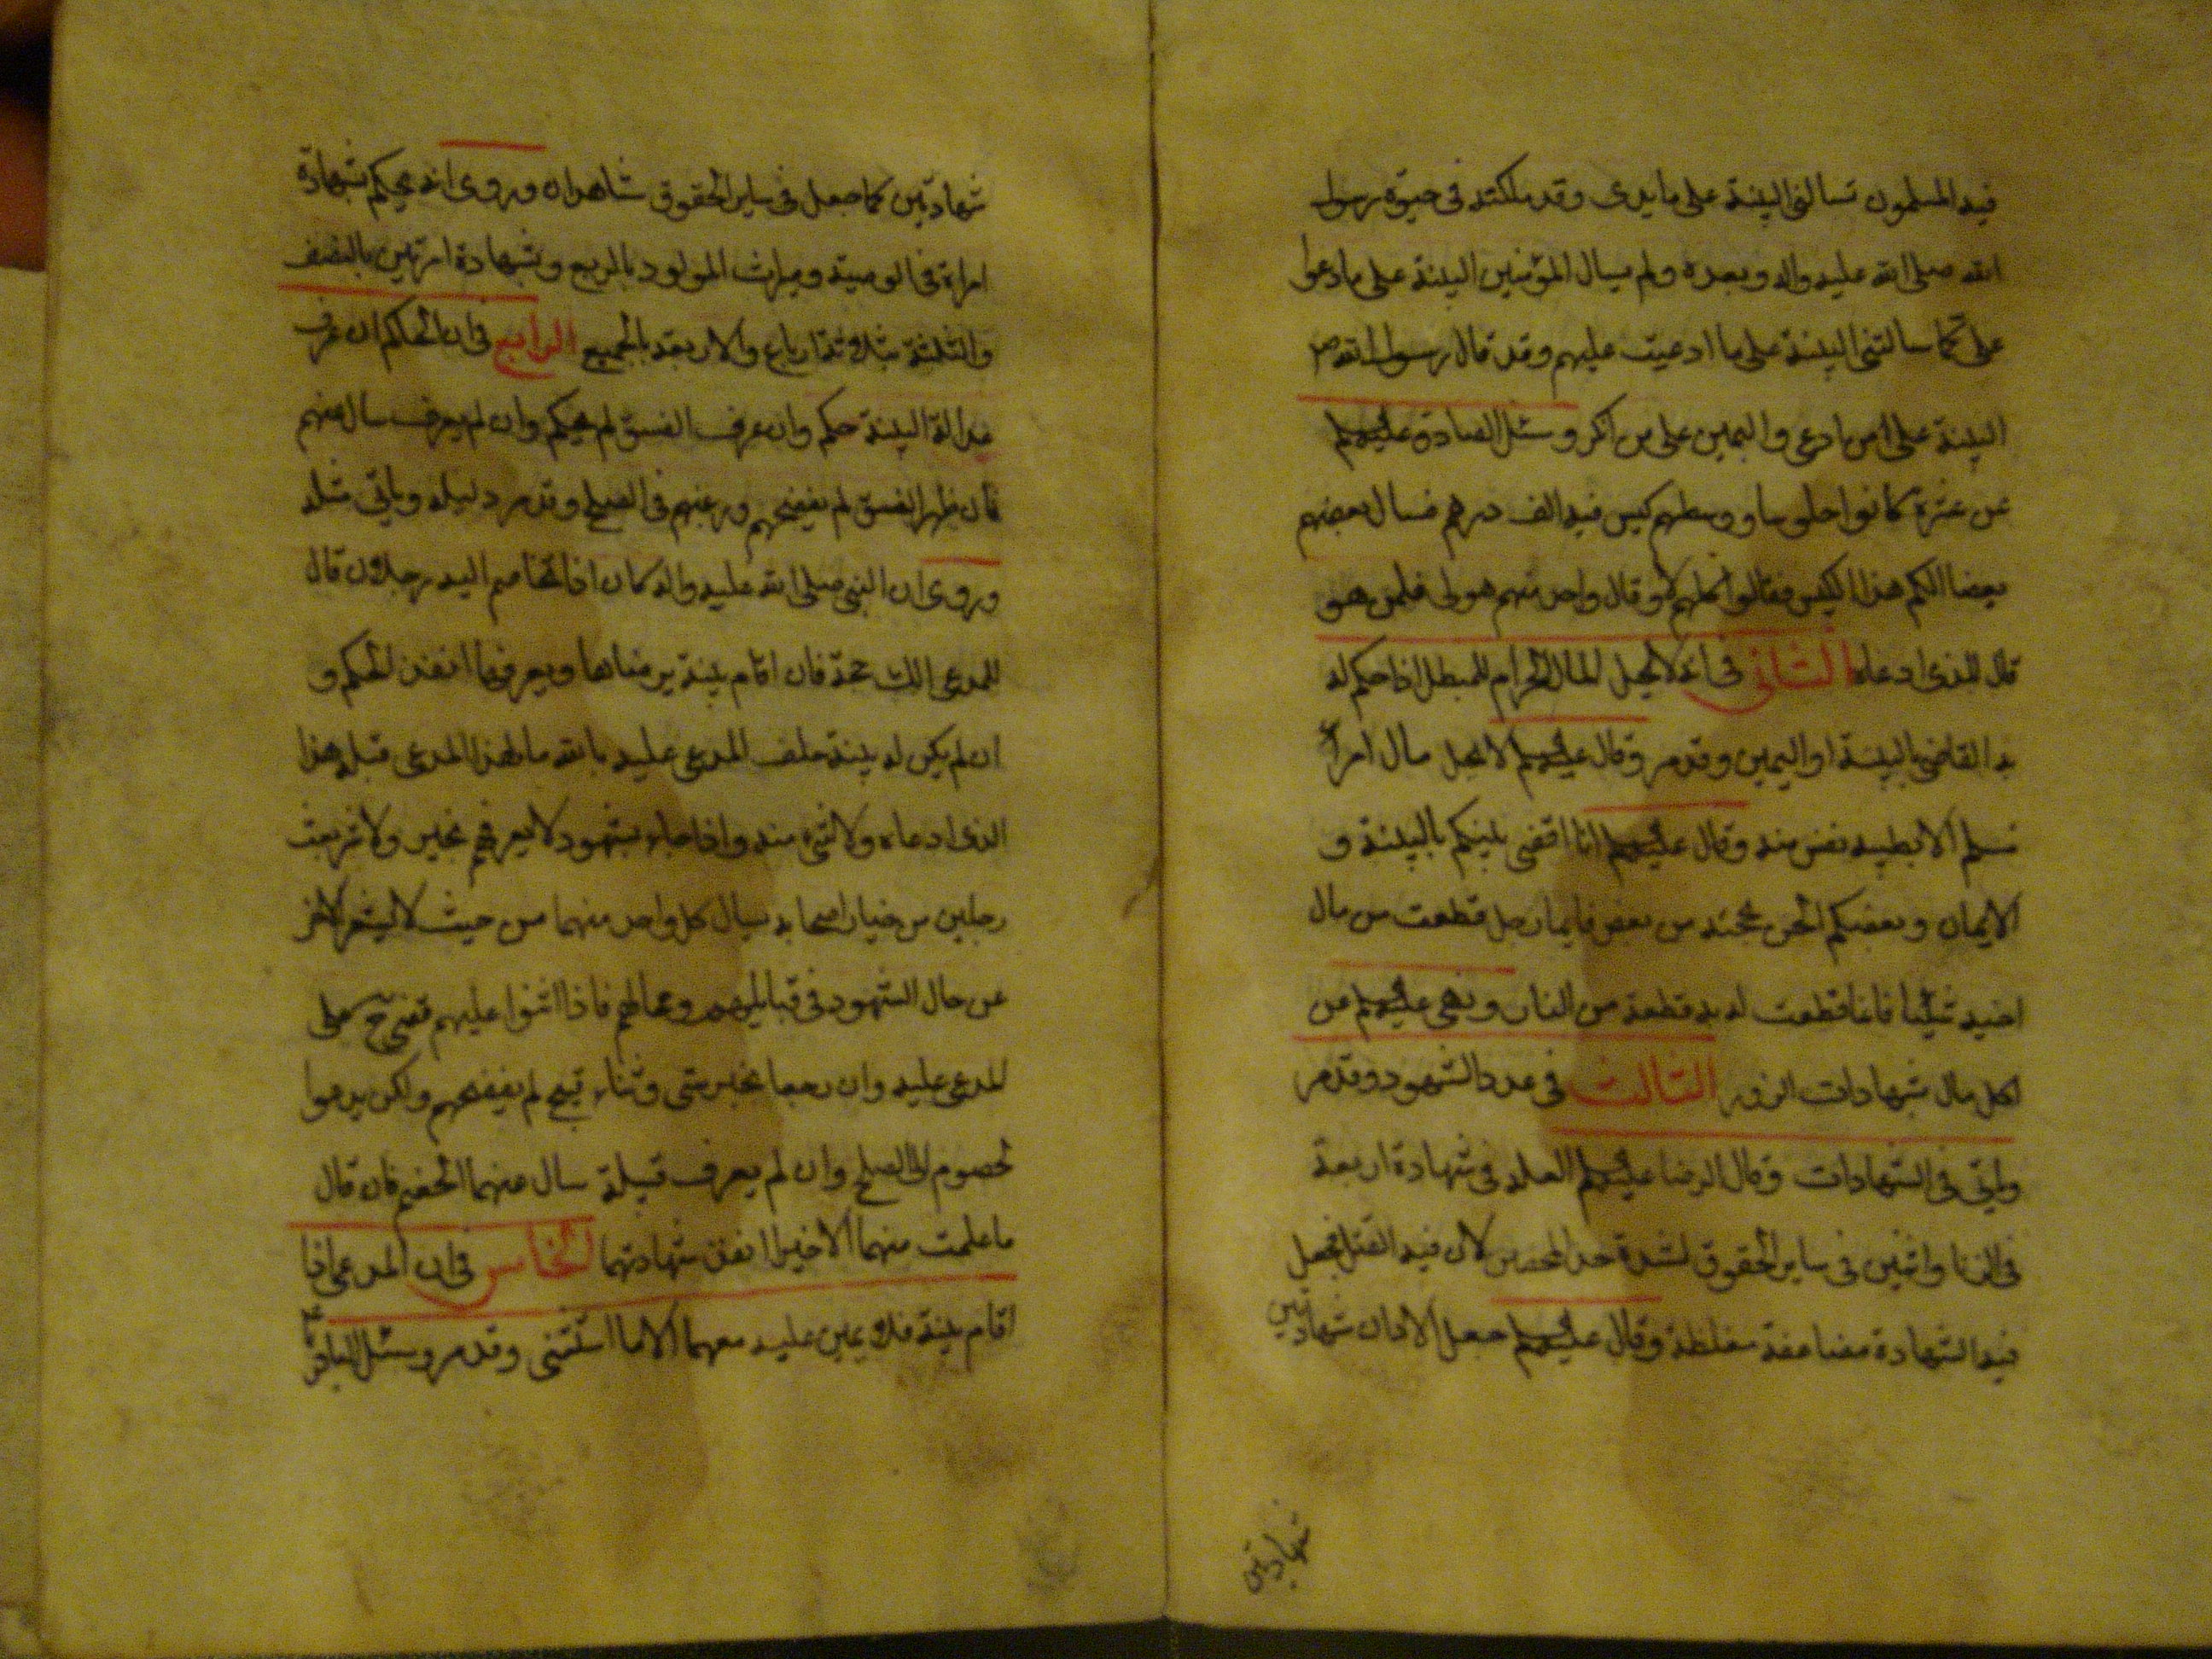 فيه المسلمون تسالنى البينة على ما يدى وقد ملكته فى حيوة رسول
الله صلى الله عليه واله وبعده ولم يسال المؤمنين البينة على ما ادعوا
على كما سالتنى البينة على ما ادعيت عليهم وقد قال رسول الله ص
البينة على من ادعى واليمين على من انكر وسئل الصادق عليه السلم
عن عشرة كانوا جلوسا ووسطهم كيس فيه الف درهم فسال بعضهم
بعضا الكم هذا الكيس فقالوا كلهم لا وقال واحد منهم هو لى فلمن هو
قال للذى ادعاه الثانى فى انه لا يحل المال الحرام للمبطل اذا حكم له
به القاضى بالبينة او اليمين وقد مر وقال عليه السلم لا يحل مال امرأ
مسلم الا بطيبه نفس منه وقال عليه السلم انا اقضى بينكم بالبينة و
الايمان وبعضكم الحن بحجته من بعض فايما رجل قطعت من مال
اخيه شيئا فانما قطعت له به قطعة من النار ونهى عليه السلم عن
اكل مال بشهادات الزور الثالث فى عدد الشهود وقد مر
وياتى فى الشهادات وقال الرضا عليه السلم العلة فى شهادة اربعة
فى الزنا واثنين فى ساير الحقوق لشدة حد المحصن لان فيه القتل فجعل
فيه الشهادة مضاعفة مغلظة وقال عليه السلم جعل شهادتين
شهادتين
شهادتين كما جعل فى ساير الحقوق شاهدان وروى انه يحكم بشهادة
امراة فى الوصية وميراث المولود بالربع وبشهادة امرتين بالنصف
والثلثة بثلاثة ارباع والاربعة بالجميع الرابع فى ان الحاكم ان عرف
عدالة البينة حكم وان عرف الفسق لم يحكم وان لم يعرف سال عنهم
فان ظهر الفسق لم يفضحهم ورغبهم فى الصلح وقد مر دليله وياتى مثله
وروى ان النبى صلى الله عليه واله كان اذا تخاصم اليه رجلان قال
للمدعى الك حجة فان اقام بينة يرضاها ويعرفها انفذ الحكم و
ان لم يكن له بينة حلف المدعى عليه بالله ما لهذا المدعى قبله هذا
الذى ادعاه ولا شىء منه واذا جاء بشهود لا يعرفهم بخير ولا شر بعث
رجلين من خيار اصحابه يسال كل واحد منهما من حيث لا يشعر الاخر
عن حال الشهود فى قبايلهم ومحالهم فاذا اثنوا عليهم قضى ح على
المدعى عليه وان رجعا بخبر شى وثناء قبيح لم يفضحهم ولكن يدعوا
الخصوم الى الصلح وان لم يعرف قبيلة سال عنهما الخصم فان قال
ما علمت منهما الا خيرا انفذ شهادتهما الخامس فى ان المدعى اذا
اقام بينة فلا يمين عليه معهما الا ما استثنى وقد مر وسئل الباقر ع